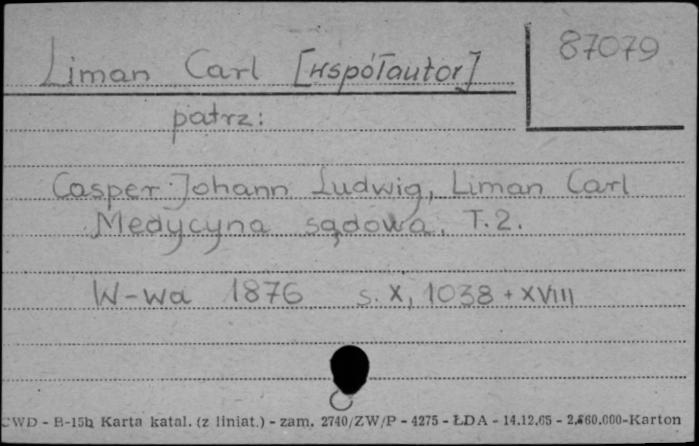 Liman Carl [współautor]
87079
patrz:
Casper Johann Ludwig, Liman Carl
Medycyna sądowa. T.2.
W-wa 1876 s. X, 1038 + XVIII
CWD - B-15b Karta katal. (z liniat.) - zam. 2740/ZW/P - 4275 - ŁDA - 14.12.65 - 2.860.000-Karton